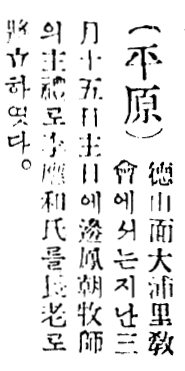 (平原)
德山面大浦里敎
會에서는지난三
月十五日主日에邊鳳朝牧師
의主禮로李應和氏를長老로
將立하엿다。